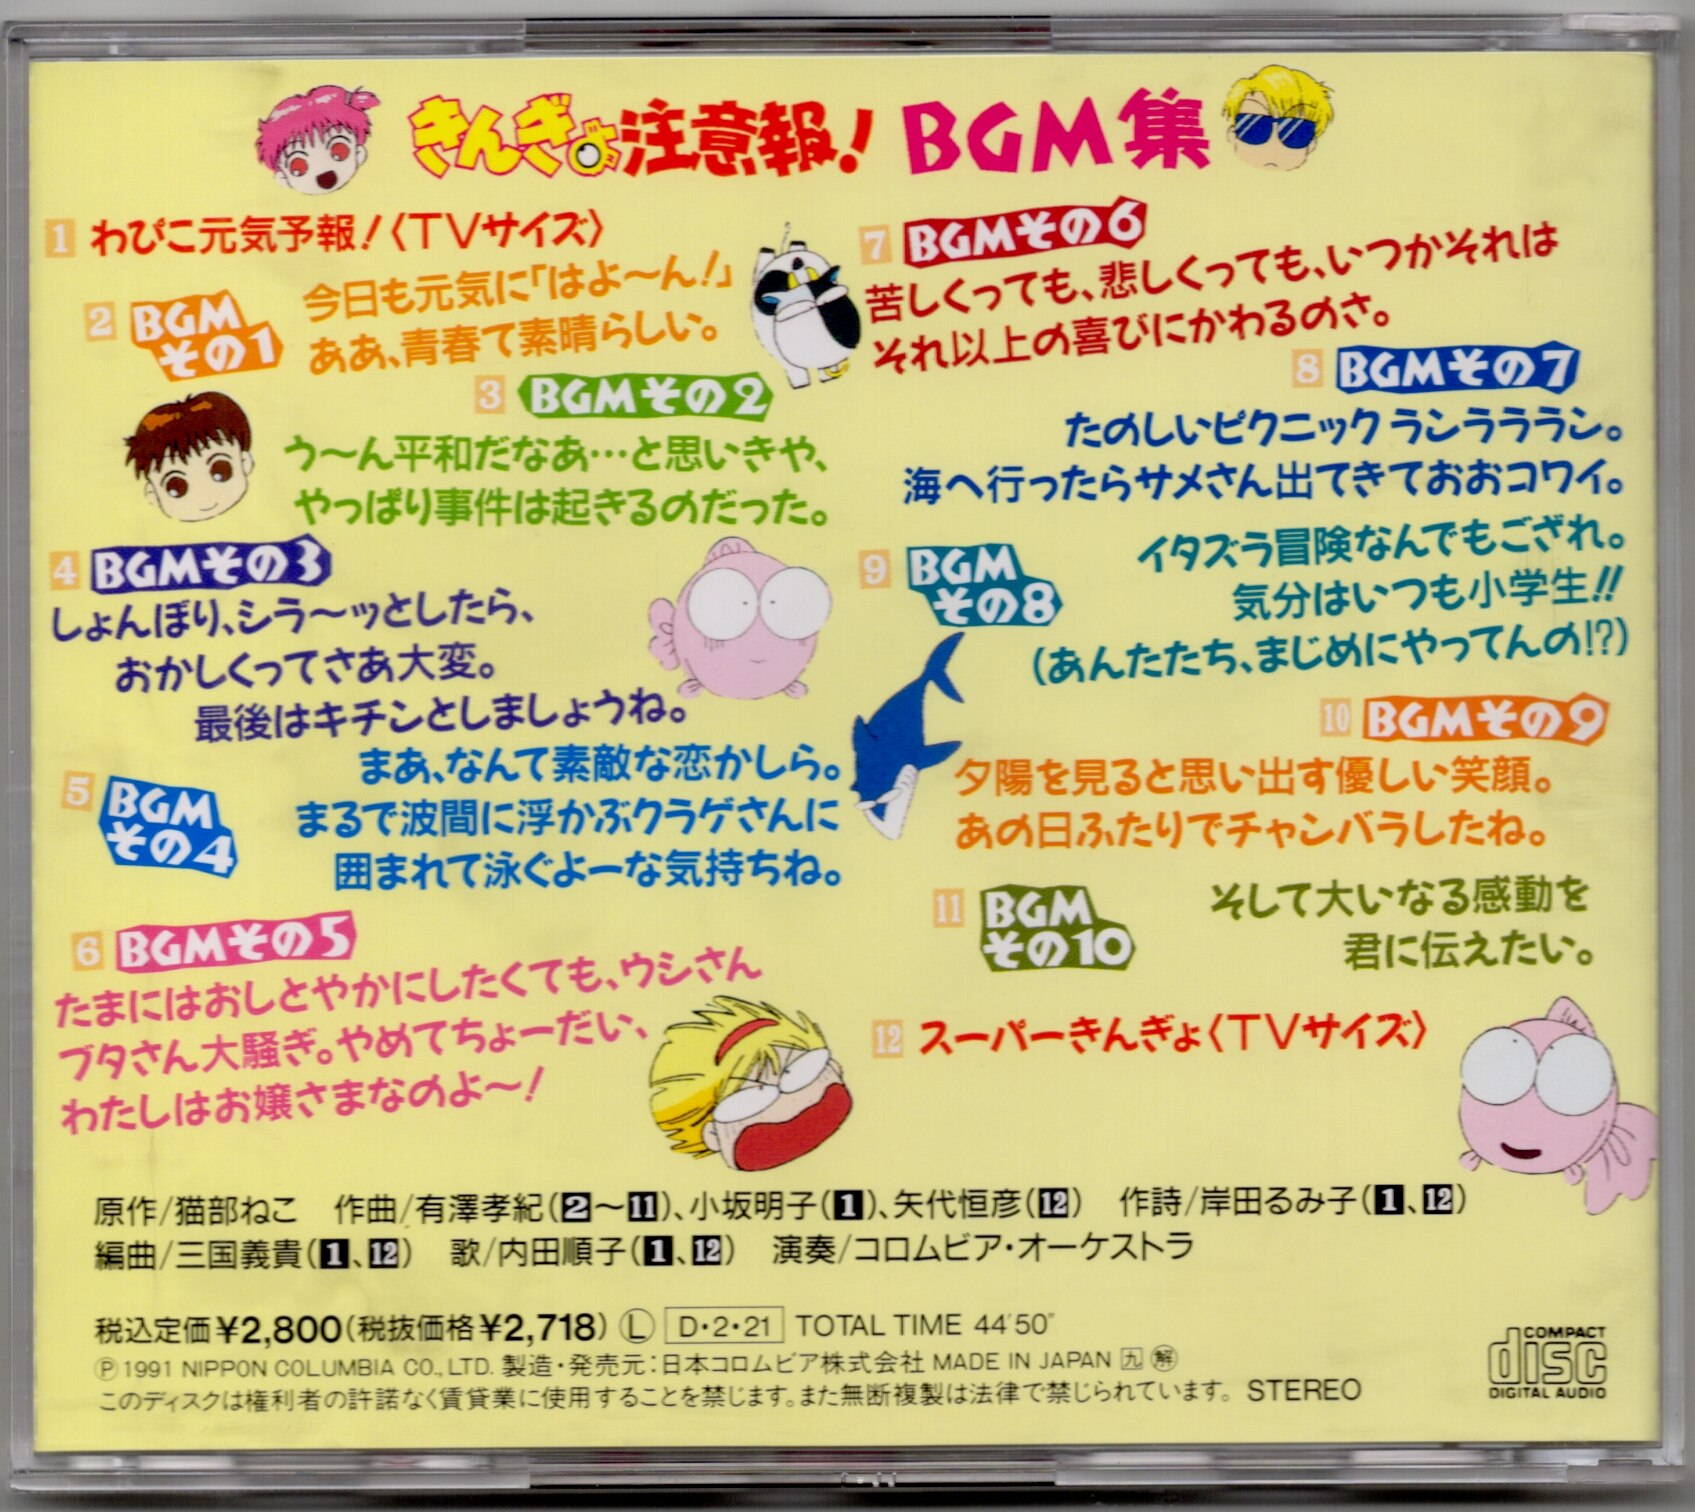 きんぎょ注意報! BGM集
1 わぴこ元気予報!〈TVサイズ〉
2 BGMその1
今日も元気に「はよ〜ん!」
ああ、青春て素晴らしい。
3 BGMその2
う〜ん平和だなあ…と思いきや、
やっぱり事件は起きるのだった。
4 BGMその3
しょんぼり、シラ〜ッとしたら、
おかしくってさあ大変。
最後はキチンとしましょうね。
5 BGMその4
まあ、なんて素敵な恋かしら。
まるで波間に浮かぶクラゲさんに
囲まれて泳ぐよーな気持ちね。
6 BGMその5
たまにはおしとやかにしたくても、ウシさん
ブタさん大騒ぎ。やめてちょーだい、
わたしはお嬢さまなのよ〜!
7 BGMその6
苦しくっても、悲しくっても、いつかそれは
それ以上の喜びにかわるのさ。
8 BGMその7
たのしいピクニック ランラララン。
海へ行ったらサメさん出てきておおコワイ。
9 BGMその8
イタズラ冒険なんでもござれ。
気分はいつも小学生!!
(あんたたち、まじめにやってんの!?)
10 BGMその9
夕陽を見ると思い出す優しい笑顔。
あの日ふたりでチャンバラしたね。
11 BGMその10
そして大いなる感動を
君に伝えたい。
12 スーパーきんぎょ〈TVサイズ〉
原作/猫部ねこ 作曲/有澤孝紀(2〜11)、小坂明子(1)、矢代恒彦(12) 作詩/岸田るみ子(1、12)
編曲/三国義貴(1、12) 歌/内田順子(1、12) 演奏/コロムビア・オーケストラ
税込定価¥2,800(税抜価格¥2,718) Ⓛ D・2・21 TOTAL TIME 44'50"
Ⓟ1991 NIPPON COLUMBIA CO., LTD. 製造・発売元:日本コロムビア株式会社 MADE IN JAPAN 九 解
このディスクは権利者の許諾なく賃貸業に使用することを禁じます。また無断複製は法律で禁じられています。 STEREO
COMPACT
disc
DIGITAL AUDIO